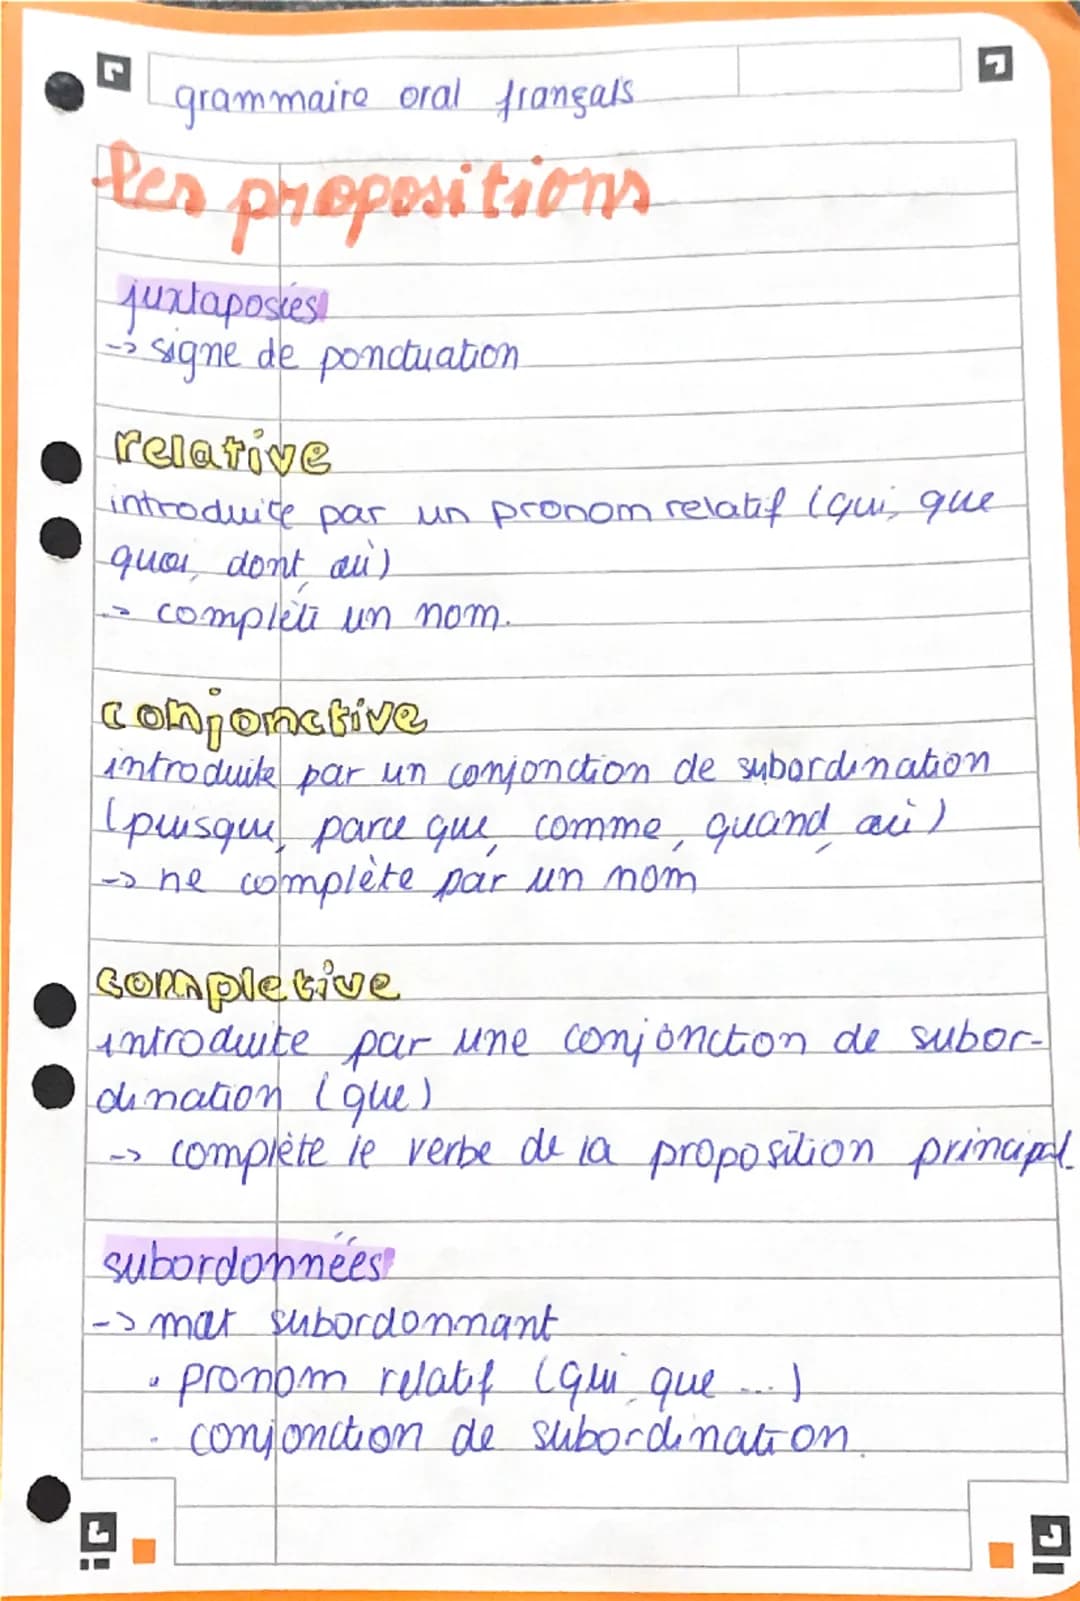 grammaire oral français
les propositions
juxtaposées
-> signe de ponctuation
relative
introduite par un pronom relatif (qui, que
quoi, dont, où)
-> complète un nom.
conjonctive
introduite par un conjonction de subordination
(puisque, parce que, comme, quand, où)
-> ne complète par un nom
completive
introduite par une conjonction de subor-
dination (que)
-> complète le verbe de la proposition principal.
subordonnées
-> mot subordonnant
• pronom relatif (qui, que ...)
• conjonction de subordination.